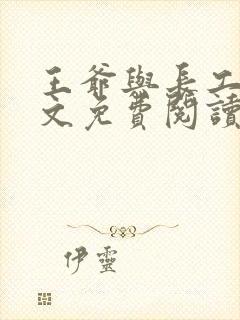 王爺與長工
文免費閱讀
伊靈